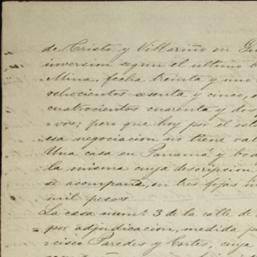 de Cristo y Villarino en Gu
inversion segun el ultimo b
Mina, fecha treinta y uno
ochocientos ochenta y cinco,
cuatrocientos cuarenta y do
pero que hoy por el
esa negociacion no tiene va
Una casa en Panamá y bod
la misma cuya descripcion
se acompaña, en tres fojas
mil pesos
La casa numº 3 de la calle de
por adjudicacion, medida p
cisco Paredes y Cortes, cuya